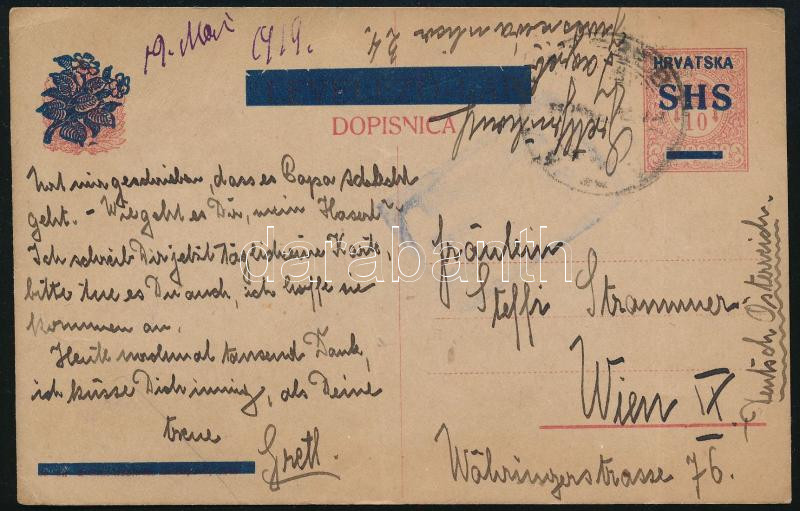 19. Mai 1919.
HRVATSKA
SHS
10
DOPISNICA
24.
Zagreb
hat mir geschrieben, dass es Papa schlecht
geht. - Wie geht es Dir, mein Haserl?
Ich schreib Dir jetzt täglich eine Karte,
bitte tue es Du auch, ich hoffe sie
kommen an.
Heute nochmal tausend Dank,
ich küsse Dich innig, als Deine
treue
Gretl.
Fräulein
Steffi Strammer
Wien IX
Währingerstrasse 76.
Deutsch Österreich.
darabanth